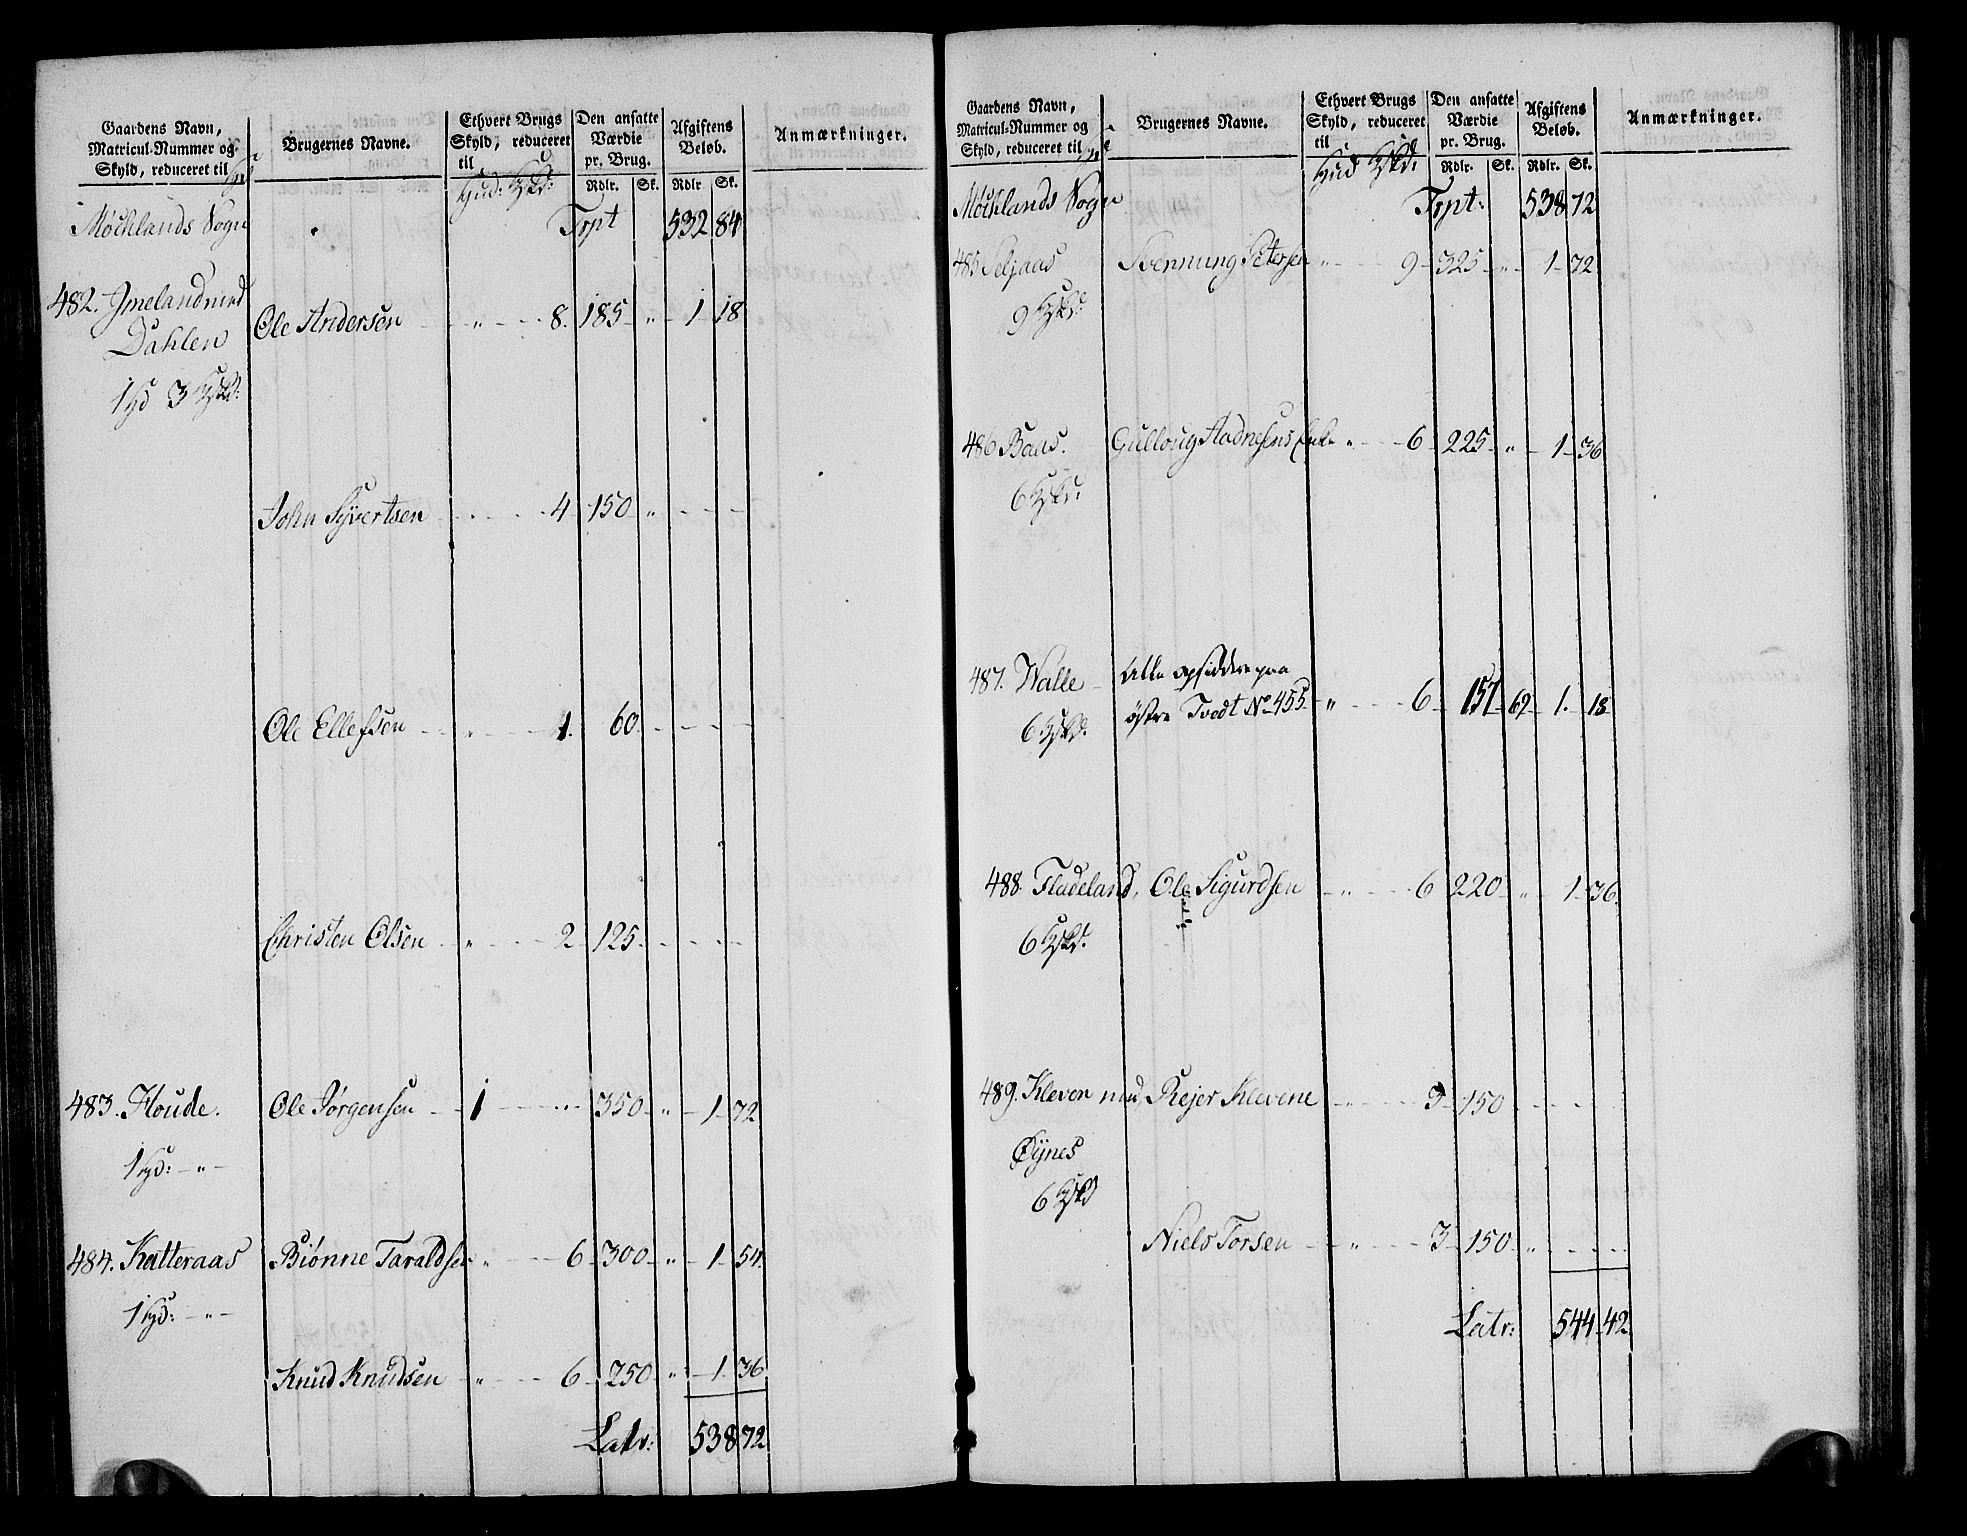 Gaardens Navn, Matricul-Nummer og Skyld, reduceret til | Brugernes Navne. | Ethvert Brugs Skyld, reduceret til | Den ansatte Værdie pr. Brug. | Afgiftens Beløb. | Anmærkninger.
Hud: Kskd: | Rdlr. | Sk. | Rdlr | Sk.
Møcklands Sogn Trpt 532 84
482. Imeland med Ole Andersen " 8. 185 " 1 18
Dahlen
1 Hd 3 Kskd:
John Syvertsen 4 150 "
Ole Ellefsen " 1. 60
Christen Olsen " 2 125
483. Floude. Ole Jørgensen 1 350 " 1 72
1 Hd: "
484. Katteraas Biønne Taraldsen " 6 300 " 1 54
1 Hd: "
Knud Knudsen " 6 250 " 1 36
Latr: 538 72
Gaardens Navn, Matricul-Nummer og Skyld, reduceret til | Brugernes Navne. | Ethvert Brugs Skyld, reduceret til | Den ansatte Værdie pr. Brug. | Afgiftens Beløb. | Anmærkninger.
Hud Kskd: | Rdlr. | Sk. | Rdlr. | Sk.
Møcklands Sogn Trpt: 538 72
485 Seljaas Svennung Petersen " 9 325 " 1 72
9 Kskd:
486 Baas. Gulloug Aadnesens Enke " 6 225 " 1 36
6 Kskd:
487. Walle Alle opsiddere paa
østre Tvedt No 455 " 6 157 69 1. 18
6 Kskd.
488. Fladeland, Ole Sigurdsen " 6 220 " 1 36
6 Kskd.
489. Kleven med Rejer Klevene " 3 150
Øynes
6 Kskd
Niels Torsen " 3 150 "
Latr: 544 42